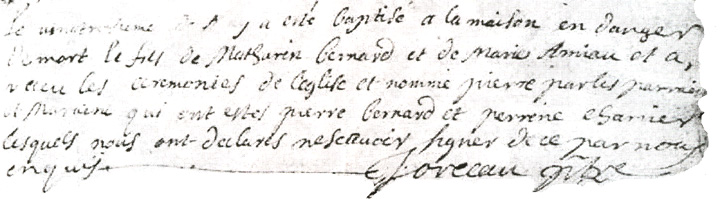 Le vingtroisieme de may a esté baptisé a la maison en danger
de mort le fils de Mathurin bernard et de Marie Amiau et a
receu les ceremonies de l'eglise et nommé pierre par les parrain
et Maraine qui ont estes pierre bernard et perrene charrier
lesquels nous ont declarés ne sçavoir signer de ce par nous
enquis Loreau ptre